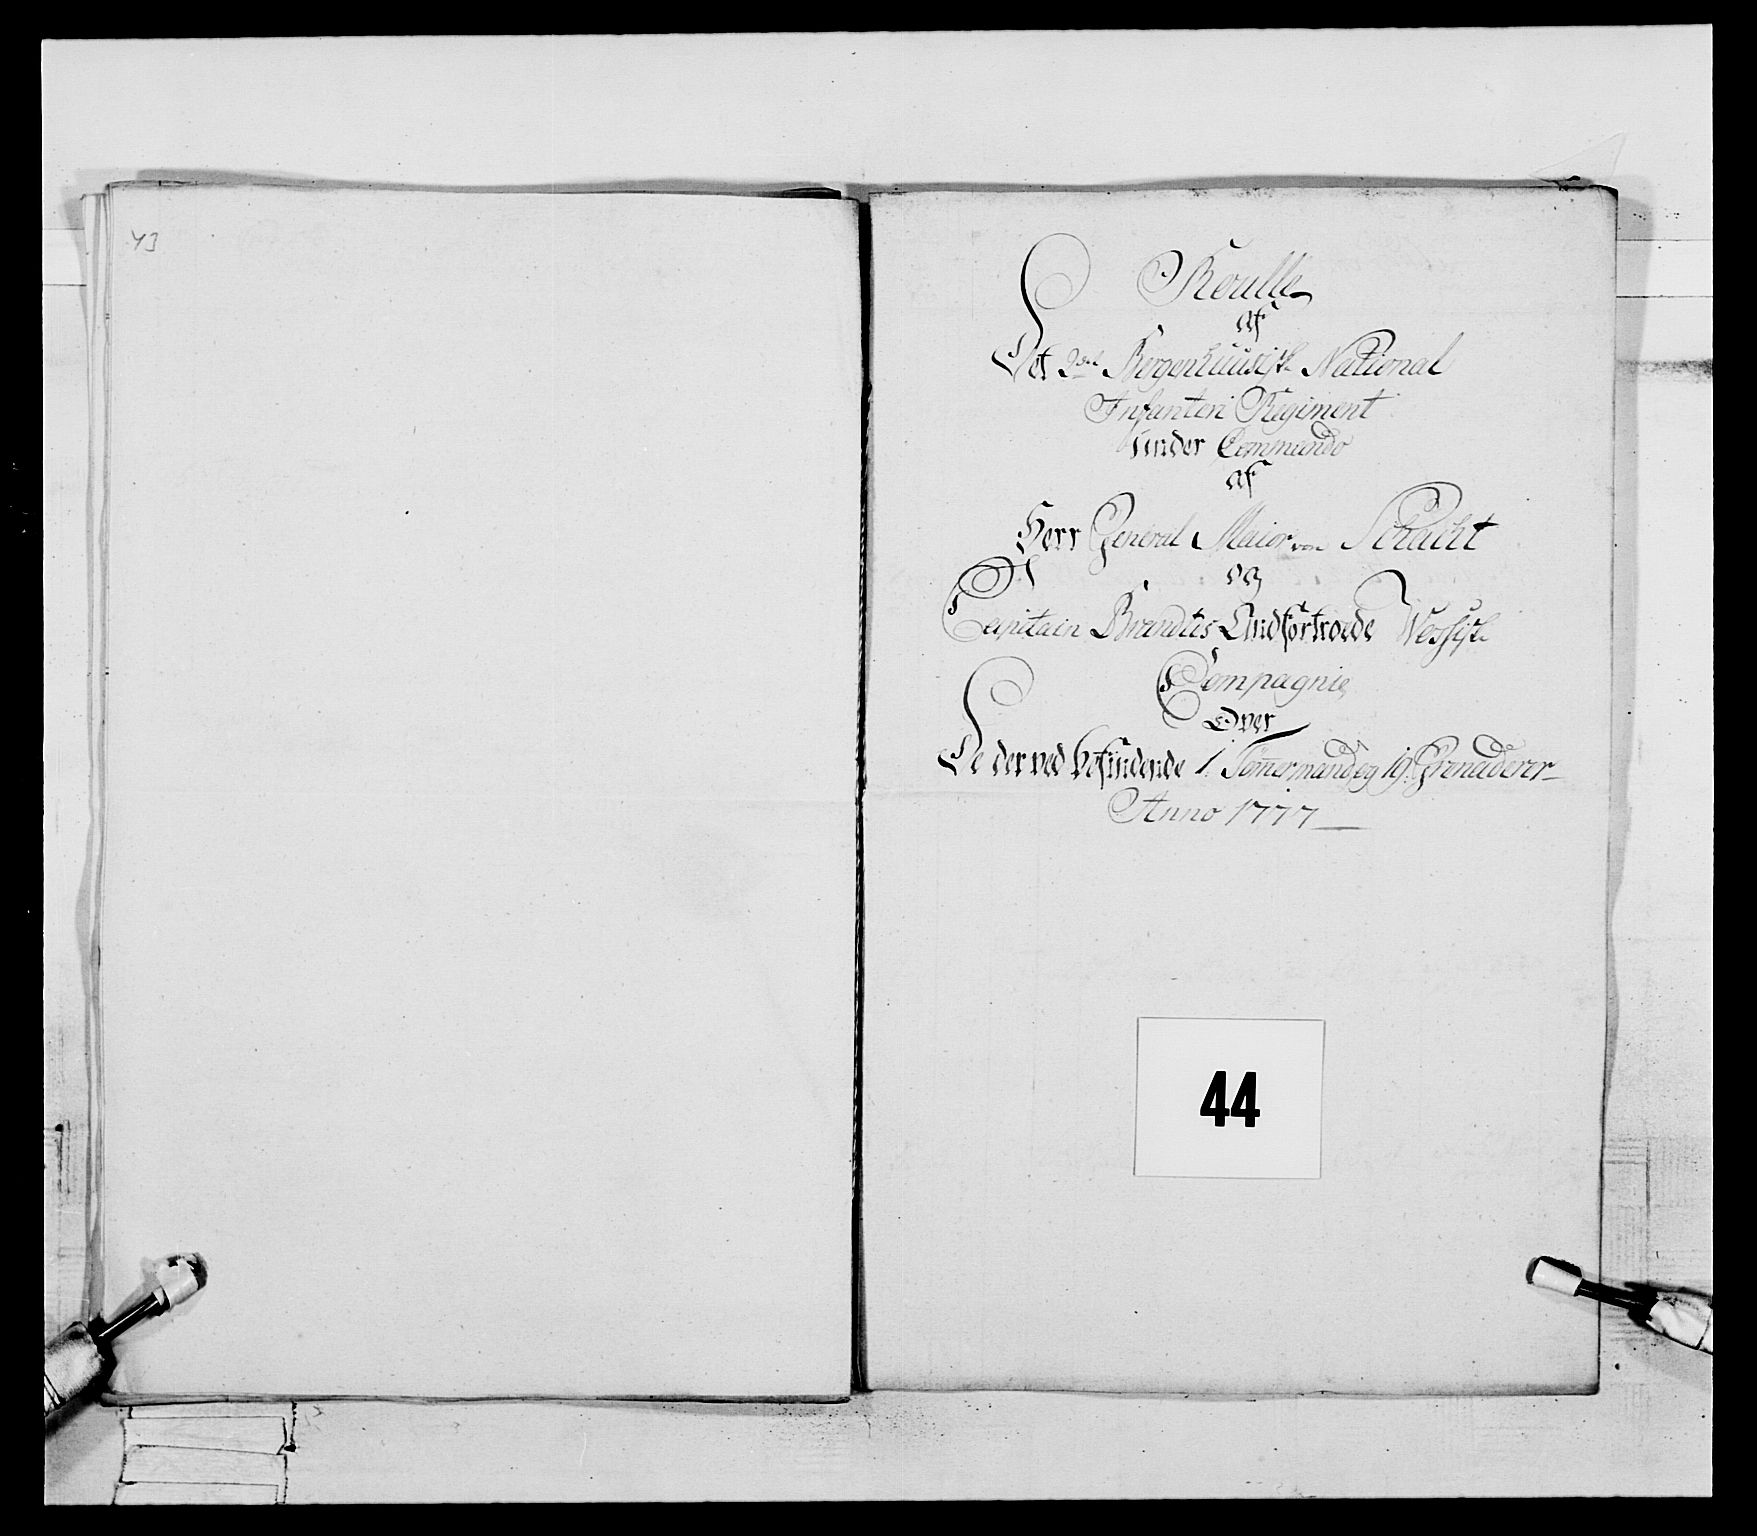 43
Roulle
Af
Det 2det Bergenhuusisk National
Infanteri Regiment
under Commando
Af
Herr General Maior von Schacht
og
Capitain Brandts Andfortroede Wossisk
Compagnie
Over
De der ved befindende 1. Tømermand og 19. Grenaderer
Anno 1777
44